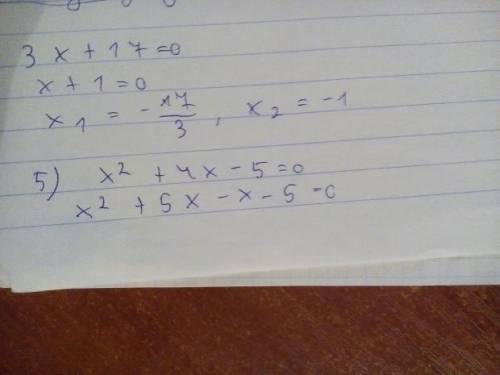 3x + 17 = 0
x + 1 = 0
x₁ = -17/3, x₂ = -1
5) x² + 4x - 5 = 0
x² + 5x - x - 5 = 0